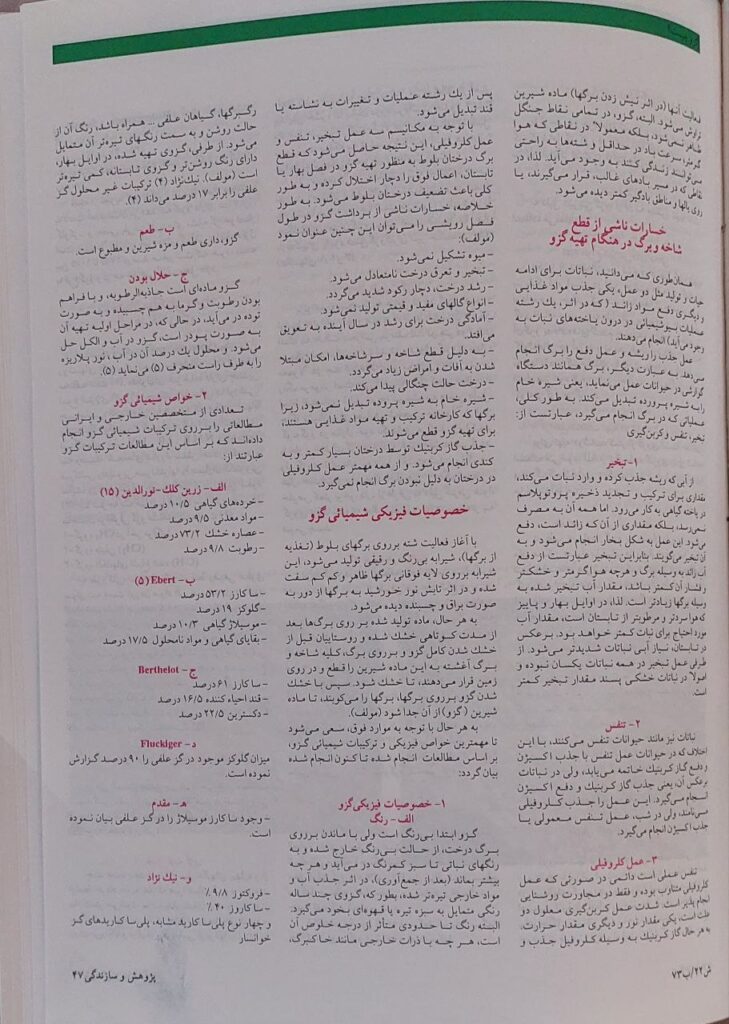 فعالیت آنها (در اثر نیش زدن برگها) ماده شیرین
تراوش می‌شود. البته، گزو، در تمامی نقاط جنگل
ظاهر نمی‌شود، بلکه معمولاً در نقاطی که هوا
گرمتر، سرعت باد در حداقل و شته‌ها به راحتی
می‌توانند زندگی کنند به وجود می‌آید. لذا، در
نقاطی که در مسیر بادهای غالب، قرار می‌گیرند، یا
روی یالها و مناطق بادگیر کمتر دیده می‌شود.
خسارات ناشی از قطع
شاخه وبرگ در هنگام تهیه گزو
همان‌طوری که می‌دانید، نباتات برای ادامه
حیات و تولید مثل دو عمل، یکی جذب مواد غذایی
و دیگری دفع مواد زائد (که در اثر، یک رشته
عملیات بیوشیمیائی در درون یاخته‌های نبات به
وجود می‌آید) انجام می‌دهند.
عمل جذب را ریشه و عمل دفع را برگ انجام
می‌دهد. به عبارت دیگر، برگ همانند دستگاه
گوارشی در حیوانات عمل می‌نماید، یعنی شیره خام
را به شیره پرورده تبدیل می‌کند. به طور کلی،
عملیاتی که در برگ انجام می‌گیرد، عبارتست از:
تبخیر، تنفس و کربن‌گیری
۱- تبخیر
از آبی که ریشه جذب کرده و وارد نبات می‌کند،
مقداری برای ترکیب و تجدید ذخیره پروتوپلاسم
در یاخته گیاهی به کار می‌رود. اما همه آن به مصرف
نمی‌رسد، بلکه مقداری از آن که زائد است، دفع
می‌شود. این عمل به شکل بخار انجام می‌شود و به
آن تبخیر می‌گویند. بنابراین تبخیر عبارتست از دفع
آب زائد به وسیله برگ و هرچه هوا گرمتر و خشکتر
و فشار آن کمتر باشد، مقدار آب تبخیر شده به
وسیله برگها زیادتر است. لذا، در اوایل بهار و پاییز
که هوا سردتر و مرطوبتر از تابستان است، مقدار آب
مورد احتیاج برای نبات کمتر خواهد بود. برعکس
در تابستان، نیاز آبی نباتات شدیدتر می‌شود. از
طرفی عمل تبخیر در همه نباتات یکسان نبوده و
اصولاً در نباتات خشکی پسند مقدار تبخیر کمتر
است.
۲- تنفس
نباتات نیز مانند حیوانات تنفس می‌کنند، با این
اختلاف که در حیوانات عمل تنفس با جذب اکسیژن
و دفع گاز کربنیک خاتمه می‌یابد، ولی در نباتات
برعکس آن، یعنی جذب گاز کربنیک و دفع اکسیژن
انجام می‌گیرد. این عمل را جذب کلروفیلی
می‌نامند، ولی در شب، عمل تنفس معمولی یا
جذب اکسیژن انجام می‌گیرد.
۳- عمل کلروفیلی
تنفس عملی است دائمی در صورتی که عمل
کلروفیلی متناوب بوده و فقط در مجاورت روشنایی
انجام پذیر است. شدت عمل کربن‌گیری معلول دو
علت است، یکی مقدار نور و دیگری مقدار حرارت.
به هر حال گاز کربنیک به وسیله کلروفیل جذب و
پس از یک رشته عملیات و تغییرات به نشاسته یا
قند تبدیل می‌شود.
با توجه به مکانیسم سه عمل تبخیر، تنفس و
عمل کلروفیلی، این نتیجه حاصل می‌شود که قطع
برگ درختان بلوط به منظور تهیه گزو در فصل بهار یا
تابستان، اعمال فوق را دچار اختلال کرده و به طور
کلی باعث تضعیف درختان بلوط می‌شود. به طور
خلاصه، خسارات ناشی از برداشت گزو در طول
فصل رویشی را می‌توان این چنین عنوان نمود
(مولف):
- میوه تشکیل نمی‌شود.
- تبخیر و تعرق درخت نامتعادل می‌شود.
- رشد درخت، دچار رکود شدید می‌گردد.
- انواع گالهای مفید و قیمتی تولید نمی‌شود.
- آمادگی درخت برای رشد در سال آینده به تعویق
می‌افتد.
- به دلیل قطع شاخه و سرشاخه‌ها، امکان مبتلا
شدن به آفات و امراض زیاد می‌گردد.
- درخت حالت چنگالی پیدا می‌کند.
- شیره خام به شیره پروده تبدیل نمی‌شود، زیرا
برگها که کارخانه ترکیب و تهیه مواد غذایی هستند،
برای تهیه گزو قطع می‌شوند.
- جذب گاز کربنیک توسط درختان بسیار کمتر و به
کندی انجام می‌شود. و از همه مهمتر عمل کلروفیلی
در درختان به دلیل نبودن برگ انجام نمی‌گیرد.
خصوصیات فیزیکی شیمیائی گزو
با آغاز فعالیت شته برروی برگهای بلوط (تغذیه
از برگها)، شیرابه بی‌رنگ و رقیقی تولید می‌شود، این
شیرابه برروی لایه فوقانی برگها ظاهر و کم کم سفت
شده و در اثر تابش نور خورشید به برگها از دور به
صورت براق و چسبنده دیده می‌شود.
به هر حال، ماده تولید شده بر روی برگ‌ها بعد
از مدت کوتاهی خشک شده و روستاییان قبل از
خشک شدن کامل گزو و برروی برگ، کلیه شاخه و
برگ آغشته به این ماده شیرین را قطع و در روی
زمین قرار می‌دهند، تا خشک شود. سپس با خشک
شدن گزو برروی برگها، برگها را می‌کوبند، تا ماده
شیرین (گزو) از آن جدا شود (مولف).
به هر حال با توجه به موارد فوق، سعی می‌شود
تا مهمترین خواص فیزیکی و ترکیبات شیمیائی گزو،
بر اساس مطالعات انجام شده تا کنون انجام شده
بیان گردد:
۱- خصوصیات فیزیکی گزو
الف- رنگ
گزو ابتدا بی‌رنگ است ولی با ماندن برروی
برگ درخت، از حالت بی‌رنگ خارج شده و به
رنگهای نباتی تا سبز کمرنگ در می‌آید و هر چه
بیشتر بماند (بعد از جمع‌آوری)، در اثر جذب آب و
مواد خارجی تیره‌تر شده، بطور که، گزوی چند ساله
رنگی متمایل به سبزه تیره یا قهوه‌ای بخود می‌گیرد.
البته رنگ تا حدودی متأثر از درجه خلوص آن
است، هر چه با ذرات خارجی مانند خاکبرگ،
رگبرگها، گیاهان علفی ... همراه باشد، رنگ آن از
حالت روشن و به سمت رنگهای تیره‌تر آن متمایل
می‌شود. از طرفی، گزوی تهیه شده، در اوایل بهار،
دارای رنگ روشن‌تر و گزوی تابستانه، کمی تیره‌تر
است (مولف). نیک‌نژاد (۴) ترکیبات غیر محلول گز
علفی را برابر ۱۷ درصد می‌داند (۴).
ب- طعم
گزو، داری طعم و مزه شیرین و مطبوع است.
ج- حلال بودن
گزو ماده‌ای است جاذب‌الرطوبه، و با فراهم
بودن رطوبت و گرما به هم چسبیده و به صورت
توده در می‌آید، در حالی که، در مراحل اولیه تهیه آن
به صورت پودر است، گزو در آب و الکل حل
می‌شود. و محلول یک درصد آن در آب، نور پلاریزه
را به طرف راست منحرف (۵) می‌نماید (۵).
۲- خواص شیمیائی گزو
تعدادی از متخصصین خارجی و ایرانی
مطالعاتی را برروی ترکیبات شیمیائی گزو انجام
داده‌اند که بر اساس این مطالعات ترکیبات گزو
عبارتند از:
الف- زرین کلک-نورالدین (۱۵)
- خرده‌های گیاهی ۱۰/۵ درصد
- مواد معدنی ۹/۵ درصد
- عصاره خشک ۷۳/۲ درصد
- رطوبت ۹/۸ درصد
ب- Ebert (۵)
- سا کارز ۵۳/۲ درصد
- گلوکز ۱۹ درصد
- موسیلاژ گیاهی ۱۰/۳ درصد
- بقایای گیاهی و مواد نامحلول ۱۷/۵ درصد
ج- Berthelot
- سا کارز ۶۱ درصد
- قند احیاء کننده ۱۶/۵ درصد
- دکسترین ۲۲/۵ درصد
د- Fluckiger
میزان گلوکز موجود در گز علفی را ۹۰ درصد گزارش
نموده است.
ه- مقدم
- وجود سا کارز موسیلاژ را در گز علفی بیان نموده
است.
و- نیک نژاد
- فروکتوز ۹/۸٪
- سا کاروز ۴۰٪
و چهار نوع پلی‌سا کارید مشابه، پلی‌سا کاریدهای گز
خوانسار
ش۲۲/ب۷۳
پژوهش و سازندگی ۴۷